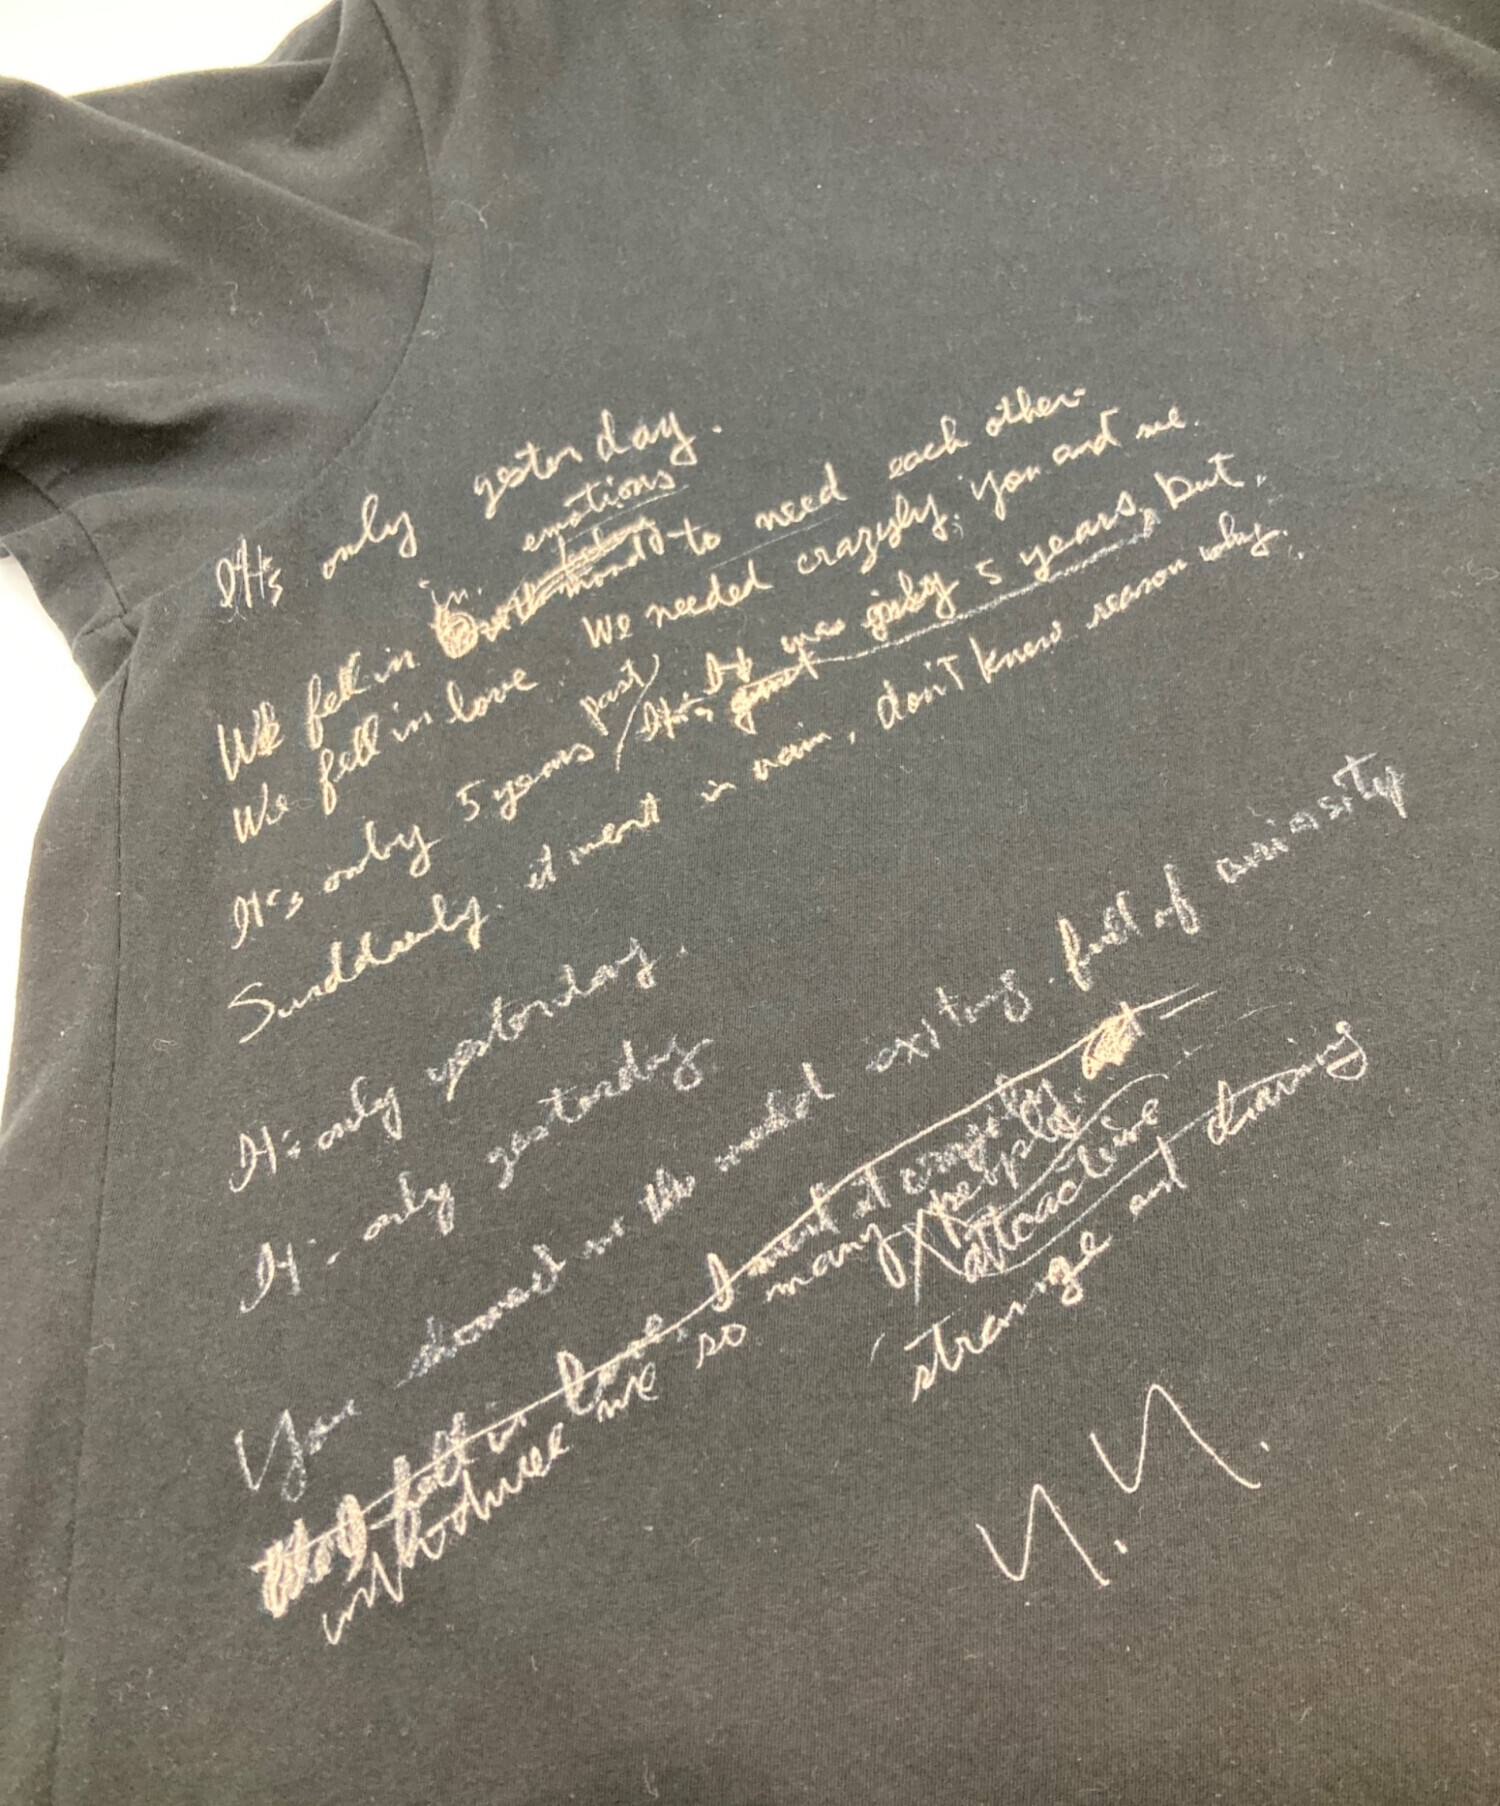 It's only yesterday.
emotions
We fell in in. to need each other.
We fell in love. We needed crazyly, you and me.
It's only 5 years past / It's just It was only 5 years, but,
Suddenly, it went in vain, don't know reason why.
It's only yesterday.
It's only yesterday
You showed me the world exiting. full of curiosity
I fell in love, I
introduce me so many people.
attractive
strange and
Y.Y.